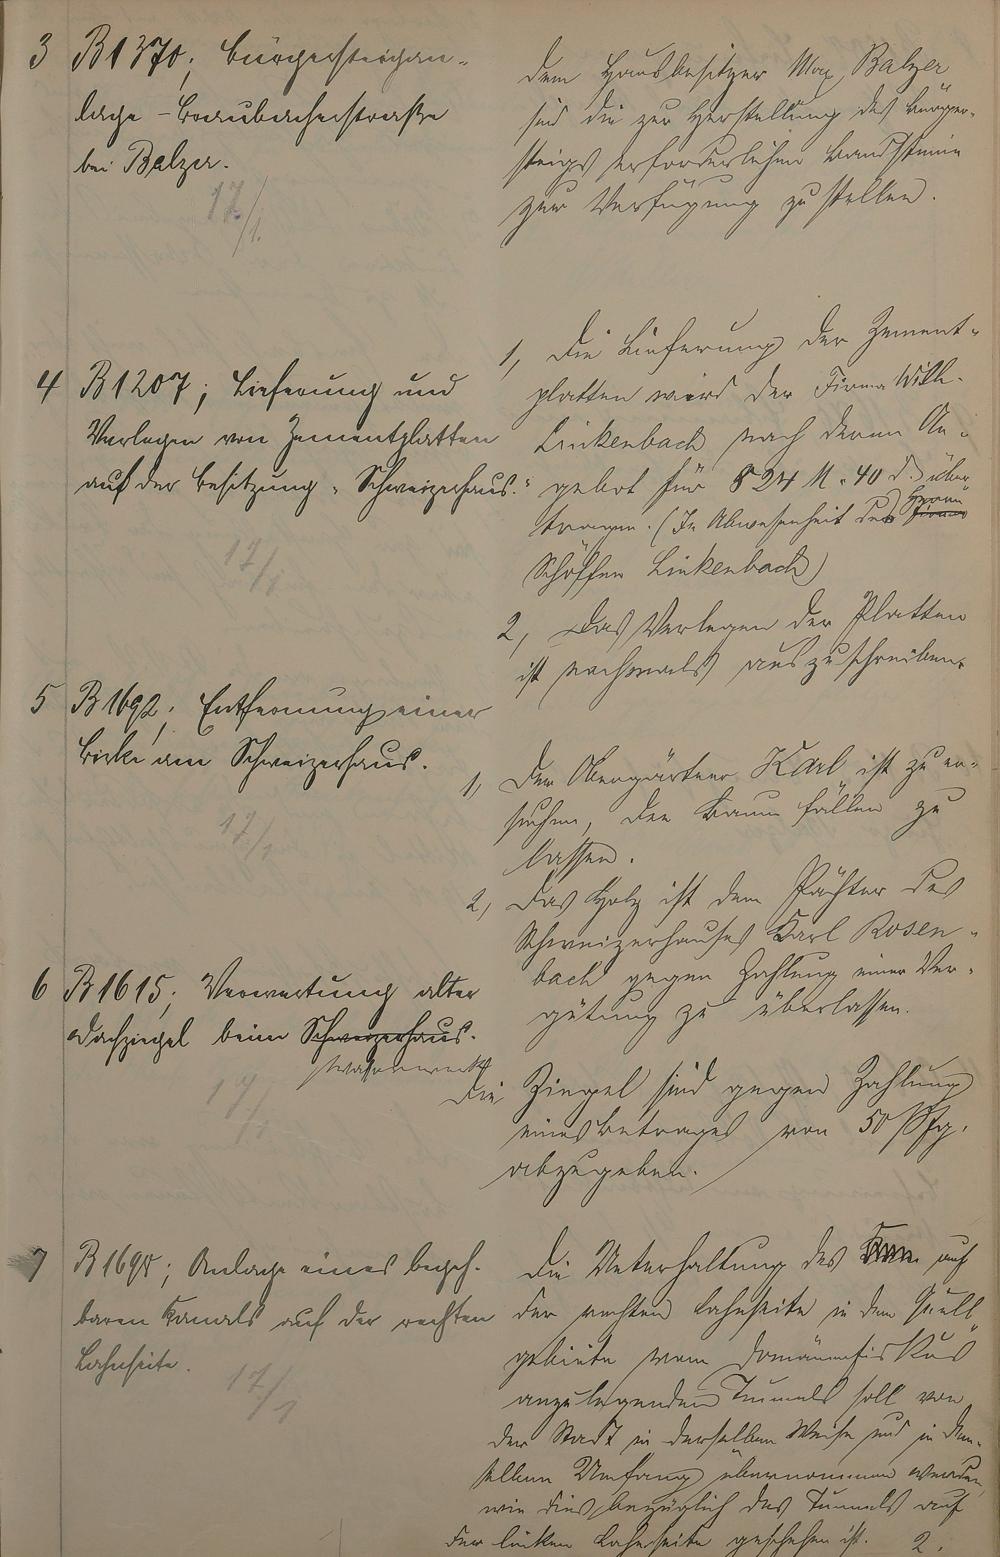 3 B 1370; Bürgersteigan-
lage - Braubacherstraße
bei Balzer.
17/1.
Dem Hausbesitzer Max Balzer
sind die zur Herstellung des Bürger-
steigs erforderlichen Bandsteine
zur Verfügung zu stellen.
4 B 1207; Lieferung und
Verlegen von Zementplatten
auf der Besitzung "Schweizerhaus."
17/1
1, Die Lieferung der Zement-
platten wird der Firma Wilh.
Linkenbach nach deren An-
gebot für 824 M. 40 über
tragen. (In Abwesenheit des Herrn Firma
Schöffen Linkenbach)
2, Das Verlegen der Platten
ist nochmals auszuschreiben.
5 B 1692; Entfernung einer
Birke am Schweizerhaus.
17/1
1, Der Obergärtner Karl ist zu er-
suchen, den Baum fällen zu
lassen.
2, Das Holz ist dem Pächter des
Schweizerhauses Karl Rosen-
bach gegen Zahlung einer Ver-
gütung zu überlassen.
6 B 1615; Verwertung alter
Dachziegel beim Schweizerhaus.
17/1
Die Ziegel sind gegen Zahlung
eines Betrages von 50 Pfg.
abzugeben.
7 B 1698; Anlage eines begeh-
baren Kanals auf der rechten
Lahnseite.
17/1
Die Unterhaltung des auf
der rechten Lahnseite in dem Quell-
gebiete vom Domänenfiskus
anzulegenden Tunnels soll von
der Stadt in derselben Weise und in dem-
selben Umfang übernommen werden,
wie dies bezüglich des Tunnels auf
der linken Lahnseite geschehen ist. 2.